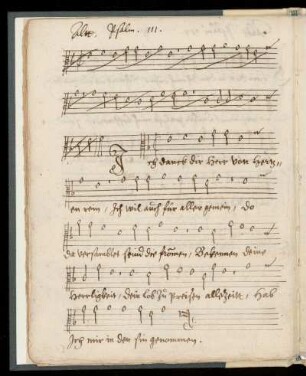 Alt. Psalm. 111.
Ich danck dir Herr von Hertz-
en rein, Ich wil auch für aller gemein, do
da versamblet seind die fromen, Bekennen deine
Herrligkeit, dein lob zu preisen allezeitt, Hab
Ich mir in den sin genommen.